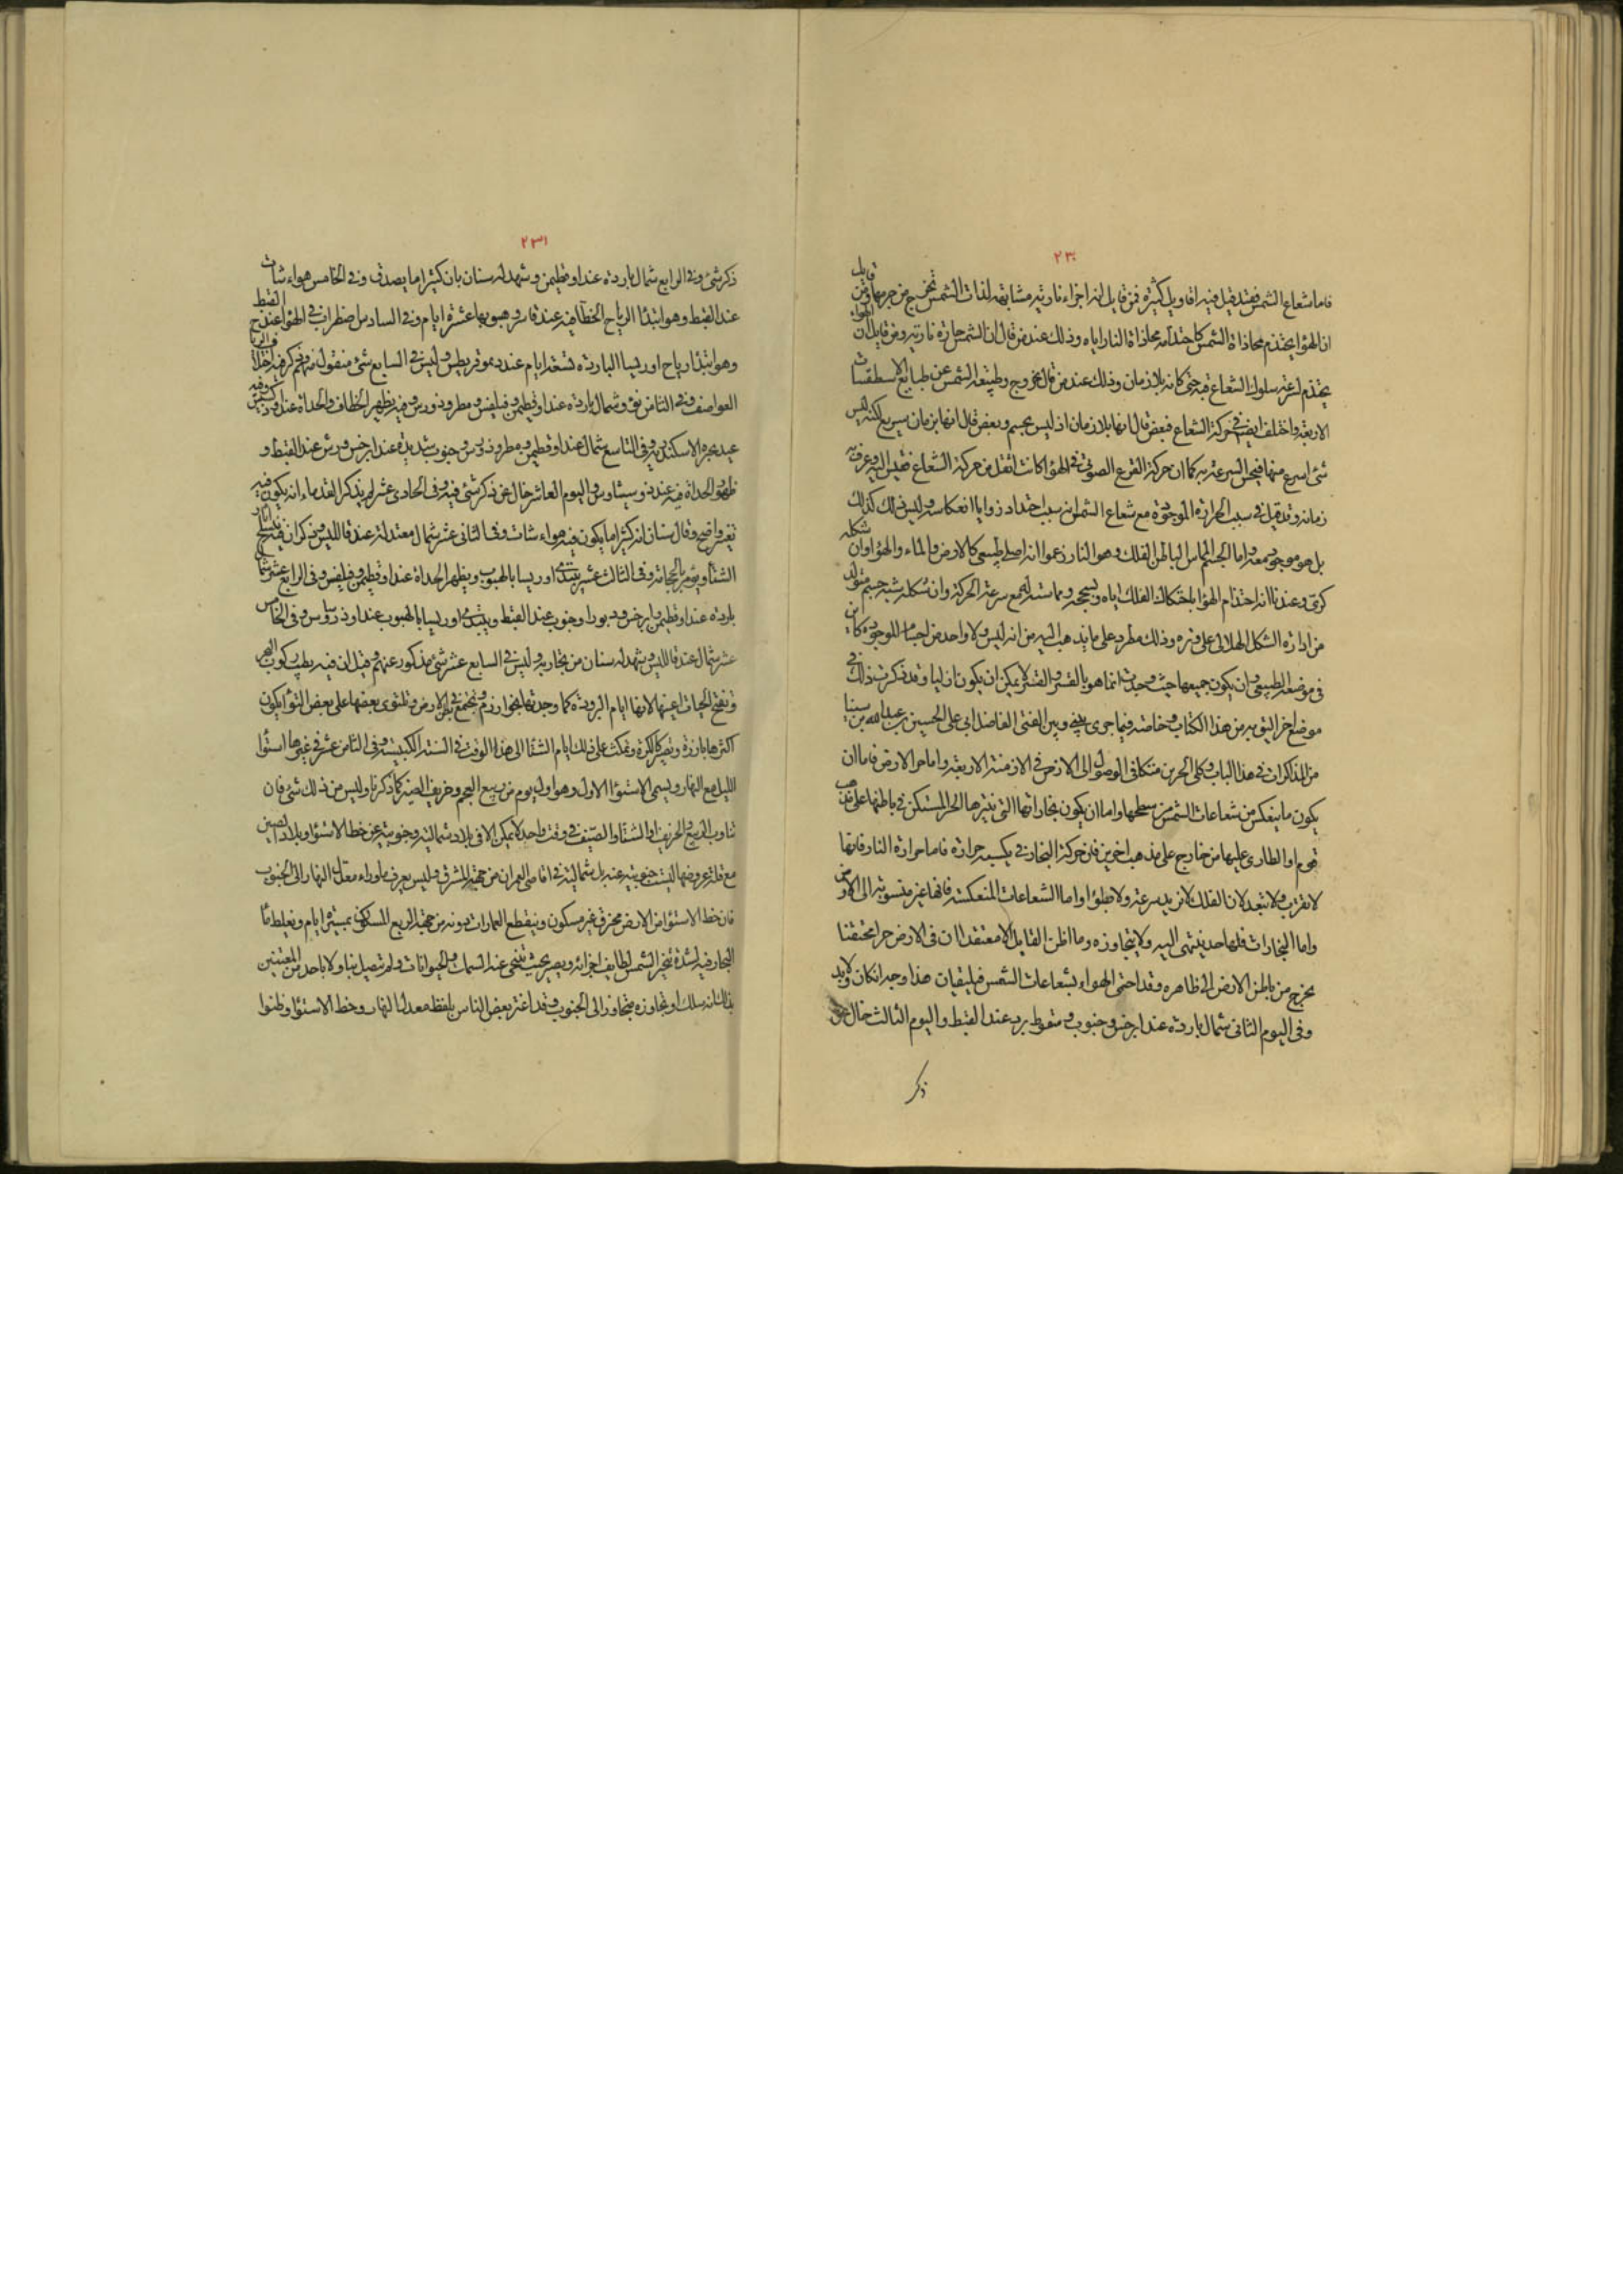 ٢٣٠
فاما شعاع الشمس فقد قيل فيه اقاويل كثيرة فمن قايل انه اجزاء نارية مشابهة لذات الشمس تخرج من جرمها ومن قايل
ان الهواء يحتدم بمحاذاة الشمس كاحتدامه بمحاذاة النار اياه وذلك عند من قال ان الشمس حارة نارية ومن قايل ان الهواء
يحتدم لسرعة سلوك الشعاع فيه حتى كانه بلا زمان وذلك عند من قال بخروج طبيعة الشمس عن طبايع الاسطقسات
الاربعة واختلف ايضا في حركة الشعاع فبعض قال انها بلا زمان اذ ليس بجسم وبعض قال انها بزمان سريع لكنه ليس
شئ اسرع منها فيحس السرعة به كما ان حركة القرع الصوتي في الهواء كانت اثقل من حركة الشعاع فقيس اليه وعرف به
زمانه وقد قيل في سبب الحرارة الموجودة مع شعاع الشمس انه بسبب احتداد زوايا انعكاسه وليس ذلك كذلك
بل هو موجود معه واما الجسم المماس لباطن الفلك وهو النار زعموا انه اصلي طبيعي كالارض والماء والهواء وان شكله
كري وعندنا انه احتدام الهواء باحتكاك الفلك اياه وسحجه ومماسته له مع سرعة الحركة وان شكله شبه جسم متولد
من ادارة الشكل الهلالي على وتره وذلك مطرد على ما يذهب اليه من انه ليس ولا واحد من اجسام الموجودة كاين
في موضعه الطبيعي وان يكون جميعها حيث وجدت انما هو بالقسر والقسر لا يمكن ان يكون ازليا وقد ذكرت ذلك في
موضع اخر اليق به من هذا الكتاب وخاصة فيما جرى بيني وبين الفتى الفاضل ابي علي الحسين بن عبد الله بن سينا
من المذاكرات في هذا الباب وكلي الحرين متكافي الوصول الى الارض في الازمنة الاربعة واما حر الارض فاما ان
يكون ما ينعكس من شعاعات الشمس من سطحها واما ان يكون بخاراتها التي تثيرها الحر المستكن في باطنها على مذهب
قوم او الطارى عليها من خارج على مذهب اخرين فان حركة البخار تكسبه حرارة فاما حرارة النار فانها
لا تقرب ولا تبعد لان الفلك لا يزيد سرعة ولا بطؤا واما الشعاعات المنعكسة فانها غير منسوبة الى الارض
واما البخارات فلها حد ينتهى اليه ولا يتجاوزه وما اظن القايل الا معتقدا ان في الارض حرا محتقنا
يخرج من باطن الارض الى ظاهره وقد احتمى الهواء بشعاعات الشمس فيلتقيان هذا وجه ان كان ولا بد
وفى اليوم الثانى شمال باردة عند ابرخس وجنوب وسقوط برد عند القبط واليوم الثالث خال عن
ذكر
٢٣١
ذكر شئ وفى الرابع شمال باردة عند اوقطيمن وشهد له سنان بان كثيرا ما يصدق وفى الخامس هواء شات
عند القبط وهو ابتداء الرياح الخطافية عند قاسر وهبوبها عشرة ايام وفى السادس اضطراب في الهواء عند القبط
وهو ابتداء رياح اورنيثيا الباردة تسعة ايام عند ديموقريطس وليس في السابع شئ منقول عنهم
العواصف وفى الثامن نوء وشمال باردة عند اوقطيمن وفيلفس ومطرودورس وفيه يظهر الخطاف والحداة عند اودكسس وفيه
عيد بحيرة الاسكندرية وفى التاسع شمال عند اوقطيمن ومطرودورس وجنوب شديدة عند ابرخس ورش عند القبط و
ظهور الحداة فيه عند دوسيثاوس واليوم العاشر خال عن ذكر شئ فيه وفى الحادى عشر لم يذكر القدماء انه يكون فيه
تغير واضح وقال سنان انه كثيرا ما يكون فيه هواء شات وفى الثانى عشر شمال معتدلة عند قاللبس
الشتاء ويؤمر بالحجامة وفى الثالث عشر يبتدئ اورنيثيا بالهبوب ويظهر الحداة عند اوقطيمن وفيلفس وفى الرابع عشر شمال
باردة عند اوقطيمن وابرخس ودبور او جنوب عند القبط ويبتدئ اورنيثيا بالهبوب عند اودكسس وفى الخامس
عشر شمال عند قاللبس وشهد له سنان من تجاربه وليس في السابع عشر شئ مذكور عنهم وقيل ان فيه يطيب ركوب البحر
وتفتح الحيات اعينها لانها ايام البرودة كما وجدتها بخوارزم وتجتمع في بطن الارض وتلتوى بعضها على بعض التواء يكون
اكثرها بارزة وتصير كالكرة وتمكث على ذلك ايام الشتاء الى هذا الوقت في السنة الكبيسة وفى الثامن عشر في غيرها استواء
الليل مع النهار ويسمى الاستواء الاول وهو اول يوم من ربيع العجم وخريف الصين كما ذكرنا وليس من ذلك شئ فان
تناوب الربيع والخريف او الشتاء والصيف في وقت واحد لا يمكن الا في بلاد شمالية وجنوبية عن خط الاستواء وبلاد الصين
مع قلة عروضها ليست جنوبية عنه بل شمالية في اقاصى العمران من جهة المشرق وليس يعرف ما وراء معدل النهار الى الجنوب
فان خط الاستواء من الارض محترق غير مسكون وينقطع العمارات دونه من جهة الربع المسكون بمسيرة ايام ويغلظ ماء
البحار فيه لشدة تبخير الشمس لطايف اجزائه ويصير بحيث تنتحى عنه السمات والحيوانات ولم يتصل بنا ولا باحد من المعتنين
بذلك انه سلك او تجاوزه متجاوز الى الجنوب وقد اغتر بعض الناس بلفظة معدل النهار وخط الاستواء وظنوا